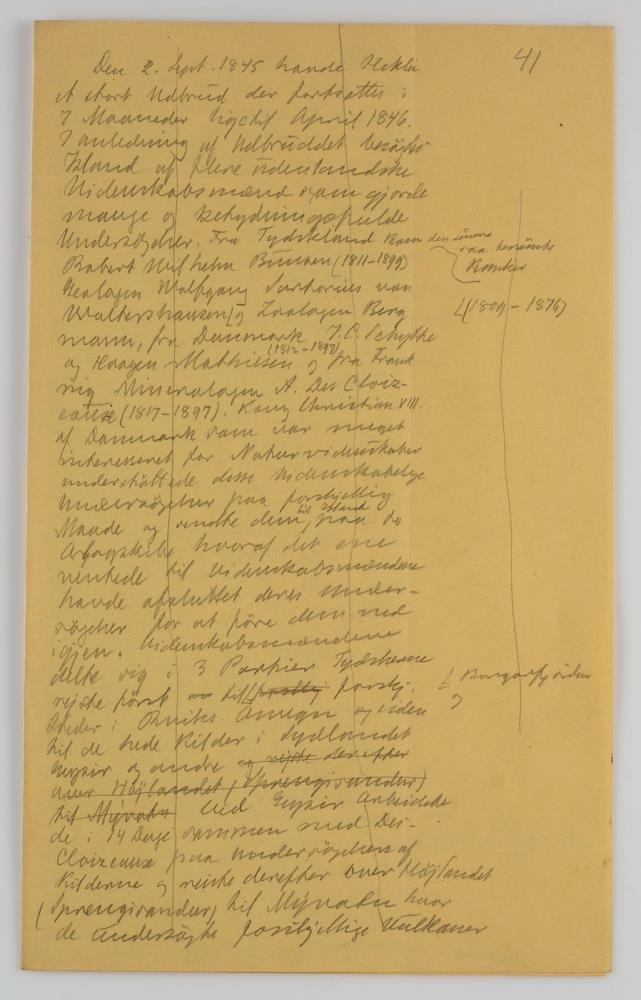 41
Den 2. Sept. 1845 havde Hekla
et stort Udbrud der fortsattes i
7 Maaneder ligetil April 1846.
I anledning af Udbruddet besögtes
Island af flere udenlandske
Videnskabsmænd som gjorde
mange og betydningsfulde
Undersögelser. Fra Tydskland kom den senere
saa berömte
Robert Wilhelm Bunsen (1811-1899)
Kemiker
Geologen Wolfgang Sartorius von
Waltershausen og Zoologen Berg
(1809-1876)
mann, fra Danmark J.C. Schythe
og Haagen Mathiesen og fra Frank
(1812-1897)
rig Mineralogen A. Des Cloiz-
eaux (1817-1897). Kong Christian VIII.
af Danmark som var meget
interesseret for Naturvidenskaber
understöttede disse Videnskabelige
Undersögelser paa forskjellig
Maade og sendte dem til Island paa to
Orlogskibe hvoraf det ene
ventede til Videnskabsmændene
havde afsluttet deres Under-
sögelser for at före dem ned
igjen. Videnskabsmændene
delte sig i 3 Partier Tydskerne
rejste först til forskj.
Borgarfjördur
og
Steder i Omegn og siden
til de hede Kilder i Sydlandet
Geysir og andre og rejste derefter
over Höjlandet (Sprengisandur)
til Mývatn Ved Geysir arbeidede
de i 14 Dage sammen med Des-
Cloizeaux paa undersögelsen af
Kilderne og reiste derefter over Höjlandet
(Sprengisandur) til Mývatn hvor
de undersögte forskjellige Vulkaner